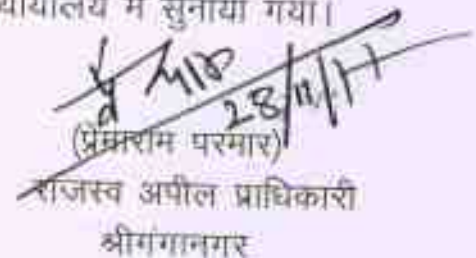 न्यायालय में सुनाया गया।
28/11/17
(प्रेमाराम परमार)
राजस्व अपील प्राधिकारी
श्रीगंगानगर